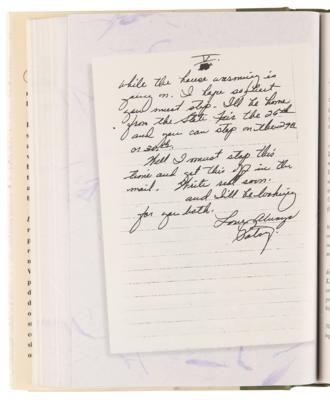 V.
while the house warming is
going on. I hope so but
you must stop. I'll be home
from the State Fair the 26th
and you can stop on the 29th
or 30th.
Well I must stop this
time and get this off in the
mail. Write real soon.
and I'll be looking
for you both.
Love Always
Patsy.